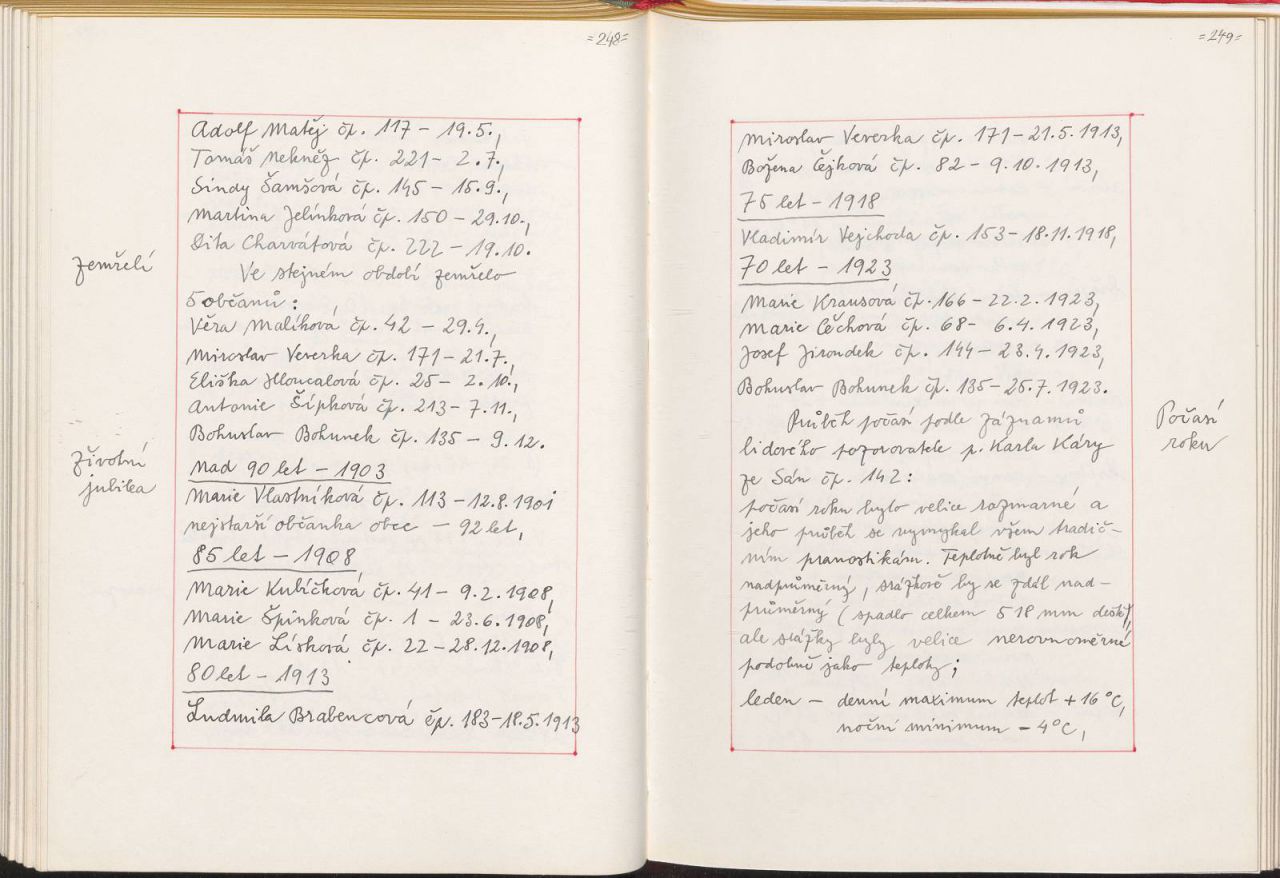 =248=
Adolf Matěj čp. 117 - 19.5.,
Tomáš Nekněz čp. 221 - 2.7.,
Sindy Šamšová čp. 145 - 15.9.,
Martina Jelínková čp. 150 - 29.10.,
Dita Charvátová čp. 222 - 19.10.
zemřelí
Ve stejném období zemřelo
5 občanů:
Věra Malíková čp. 42 - 29.4.,
Miroslav Veverka čp. 171 - 21.7.,
Eliška Hloucalová čp. 25 - 2.10.,
Antonie Šípková čp. 213 - 7.11.,
Bohuslav Bohunek čp. 135 - 9.12.
životní
jubilea
nad 90 let - 1903
Marie Vlastníková čp. 113 - 12.8.1901
nejstarší občanka obce - 92 let,
85 let - 1908
Marie Kubíčková čp. 41 - 9.2.1908,
Marie Špinková čp. 1 - 23.6.1908,
Marie Lísková čp. 22 - 28.12.1908,
80 let - 1913
Ludmila Brabencová čp. 183 - 18.5.1913
=249=
Miroslav Veverka čp. 171 - 21.5.1913,
Božena Čejková čp. 82 - 9.10.1913,
75 let - 1918
Vladimír Vejchoda čp. 153 - 18.11.1918,
70 let - 1923
Marie Krausová čp. 166 - 22.2.1923,
Marie Čechová čp. 68 - 6.4.1923,
Josef Jiroudek čp. 144 - 23.4.1923,
Bohuslav Bohunek čp. 135 - 25.7.1923.
Počasí
roku
Průběh počasí podle záznamů
lidového pozorovatele p. Karla Káry
ze Sán čp. 142:
počasí roku bylo velice rozmarné a
jeho průběh se vymykal všem tradič-
ním pranostikám. Teplotně byl rok
nadprůměrný, srážkově by se zdál nad-
průměrný (spadlo celkem 518 mm deště),
ale srážky byly velice nerovnoměrné
podobně jako teploty;
leden - denní maximum teplot +16°C,
noční minimum - 4°C,